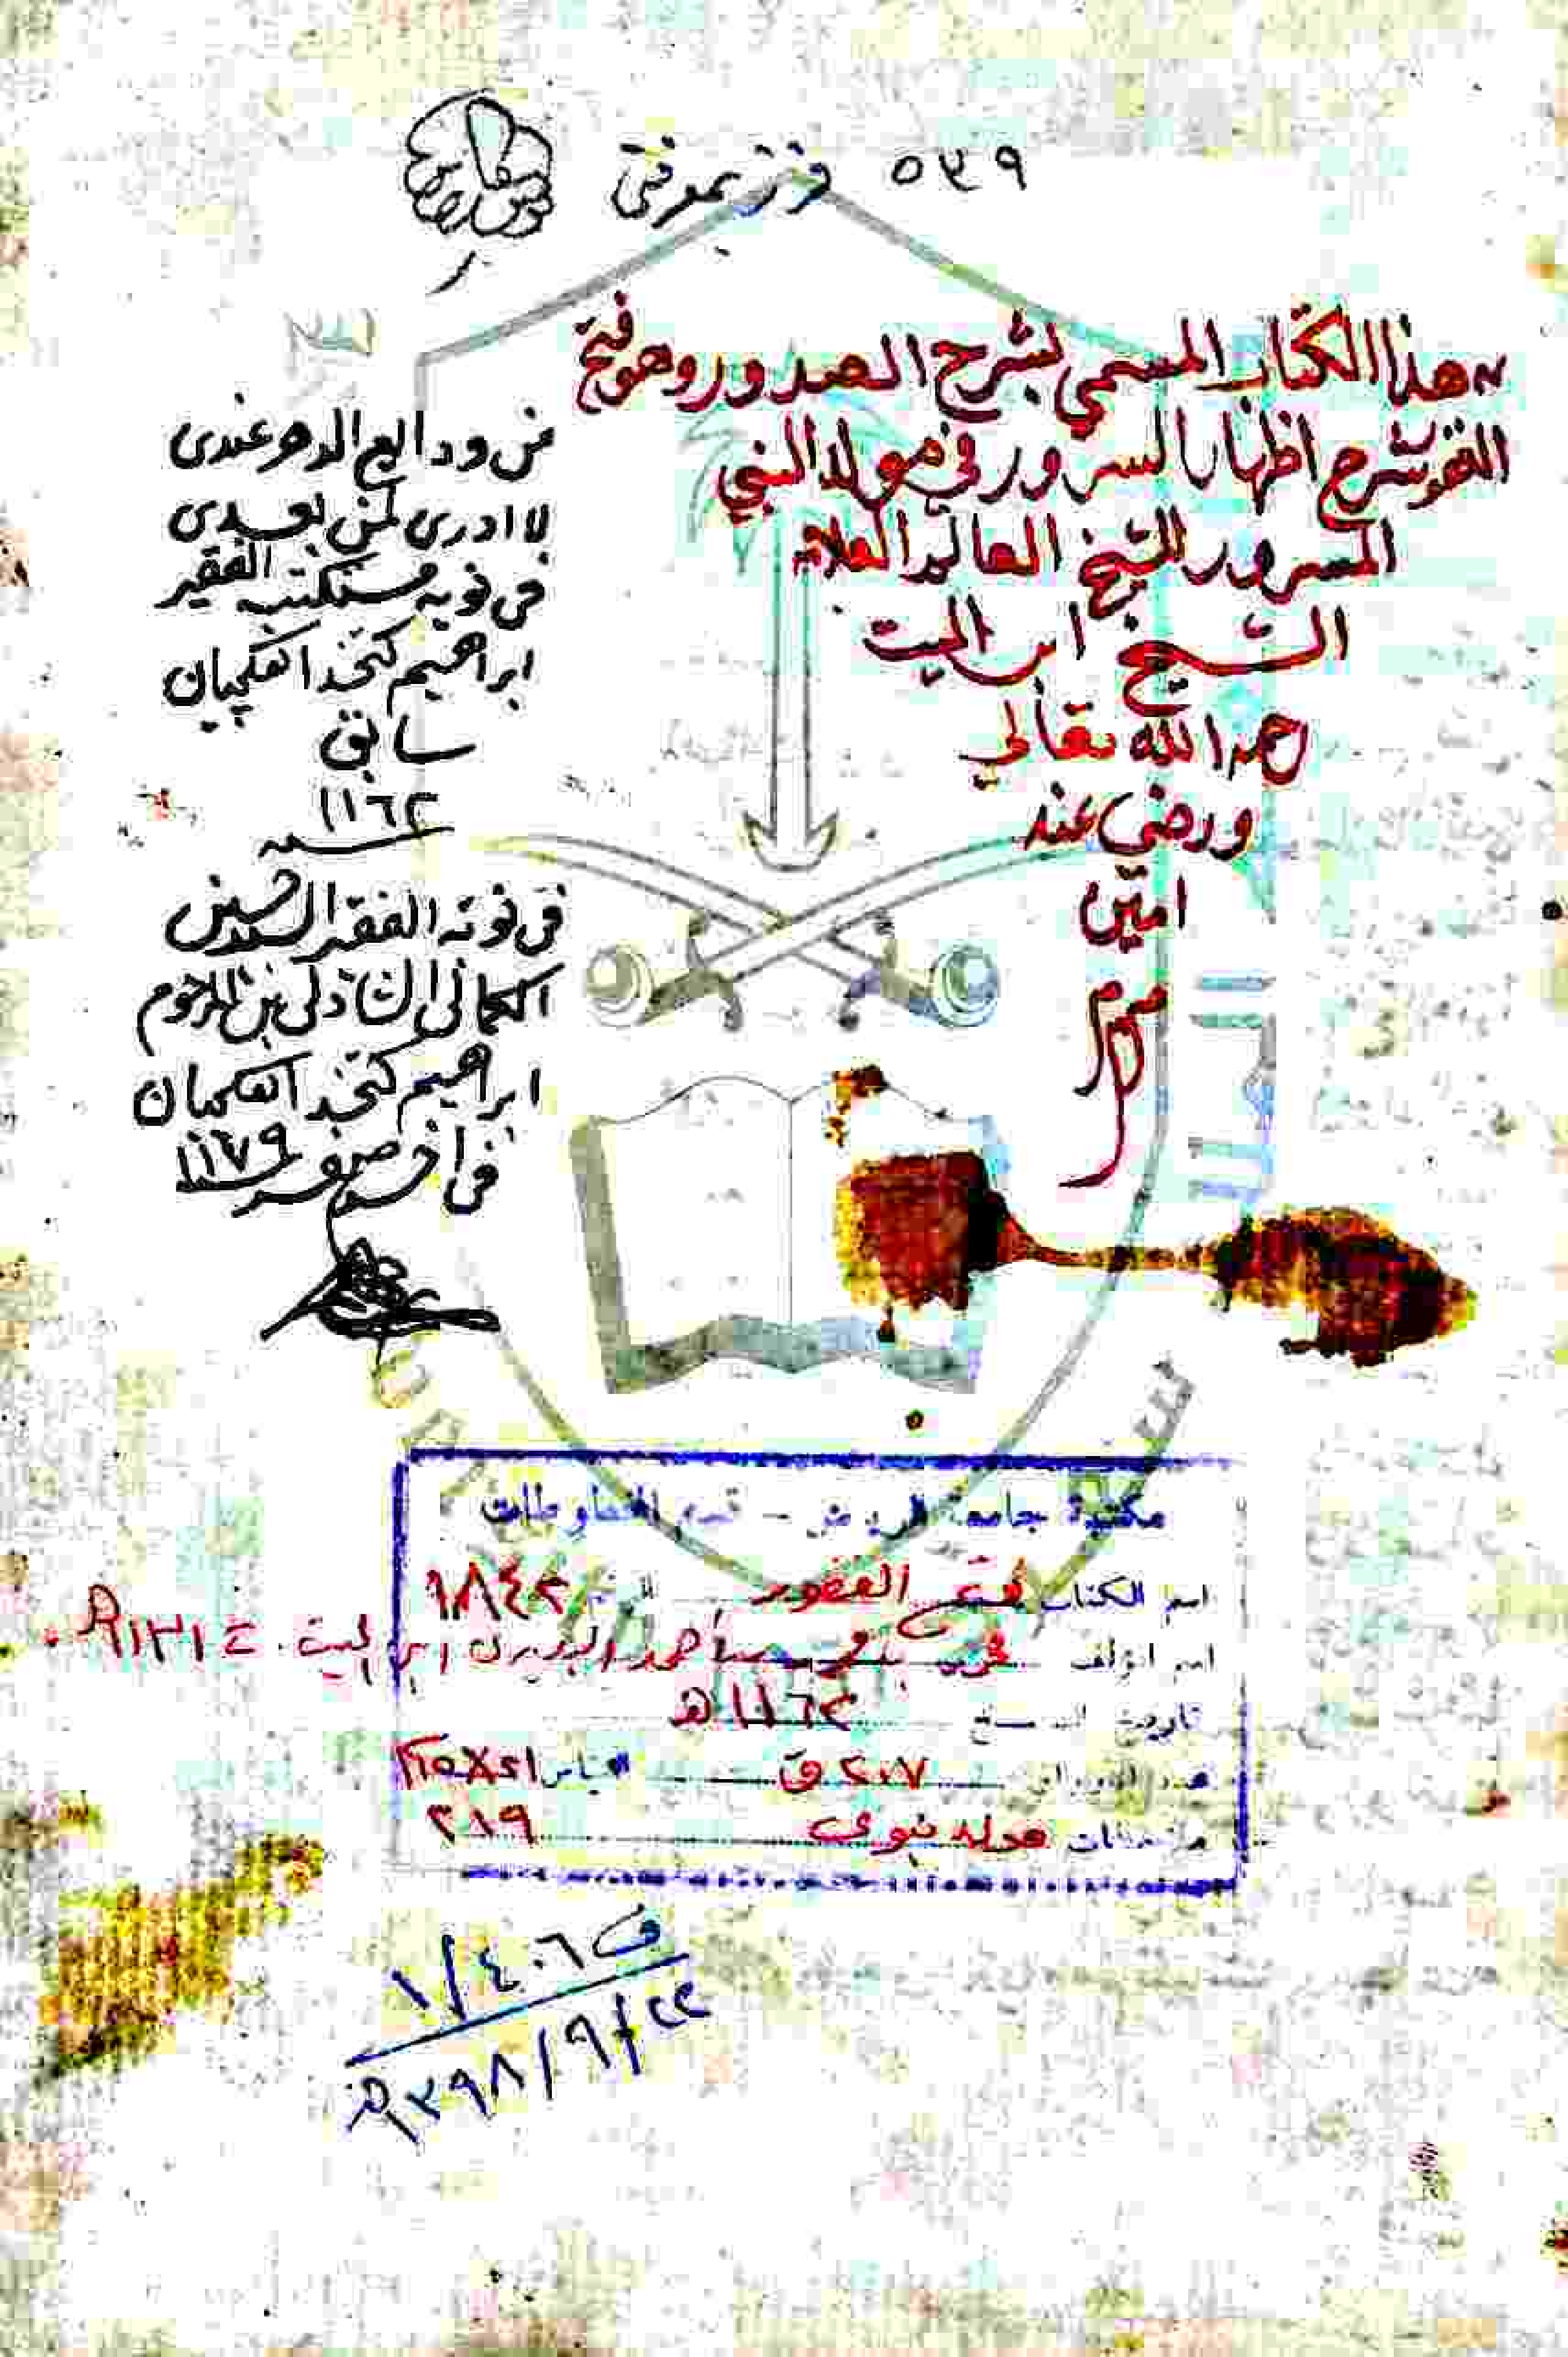 ٥٣٩
هذا الكتاب المسمى بشرح الصدور وهو فتح
الغفور شرح اظهار السرور في مولد النبي
المسرور للشيخ العالم العلامة
الشيخ ابن الميت
رحمه الله تعالى
ورضي عنه
امين
من ودايع الدهر عندى
لا ادرى لمن بعدى
في نوبة مستكتبه الفقير
ابراهيم كتخدا تفكجيان
سابق
١١٦٢
سنة
في نوبة الفقير السيد حسين
الكمالى الشاذلى بن المرحوم
ابراهيم كتخدا تفكجيان
في اخر صفر سنة ١١٧٩
مكتبة جامعة الرياض - قسم المخطوطات
اسم الكتاب فتح الغفور الرقم ١٨٤٢
اسم المؤلف محمد بن محمد بن احمد البديرى ابن الميت
تاريخ النسخ ١١٦٢هـ
عدد الاوراق ٢٠٧ ق القياس ٢١×١٥
ملاحظات مولد نبوى ٢١٩
ف ١/٤٠٦
٢٢/٩/١٣٩٨هـ